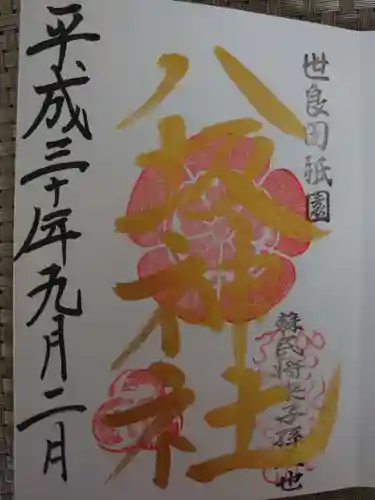 世良田祇園
八坂神社
蘇民将来子孫也
平成三十年九月二日